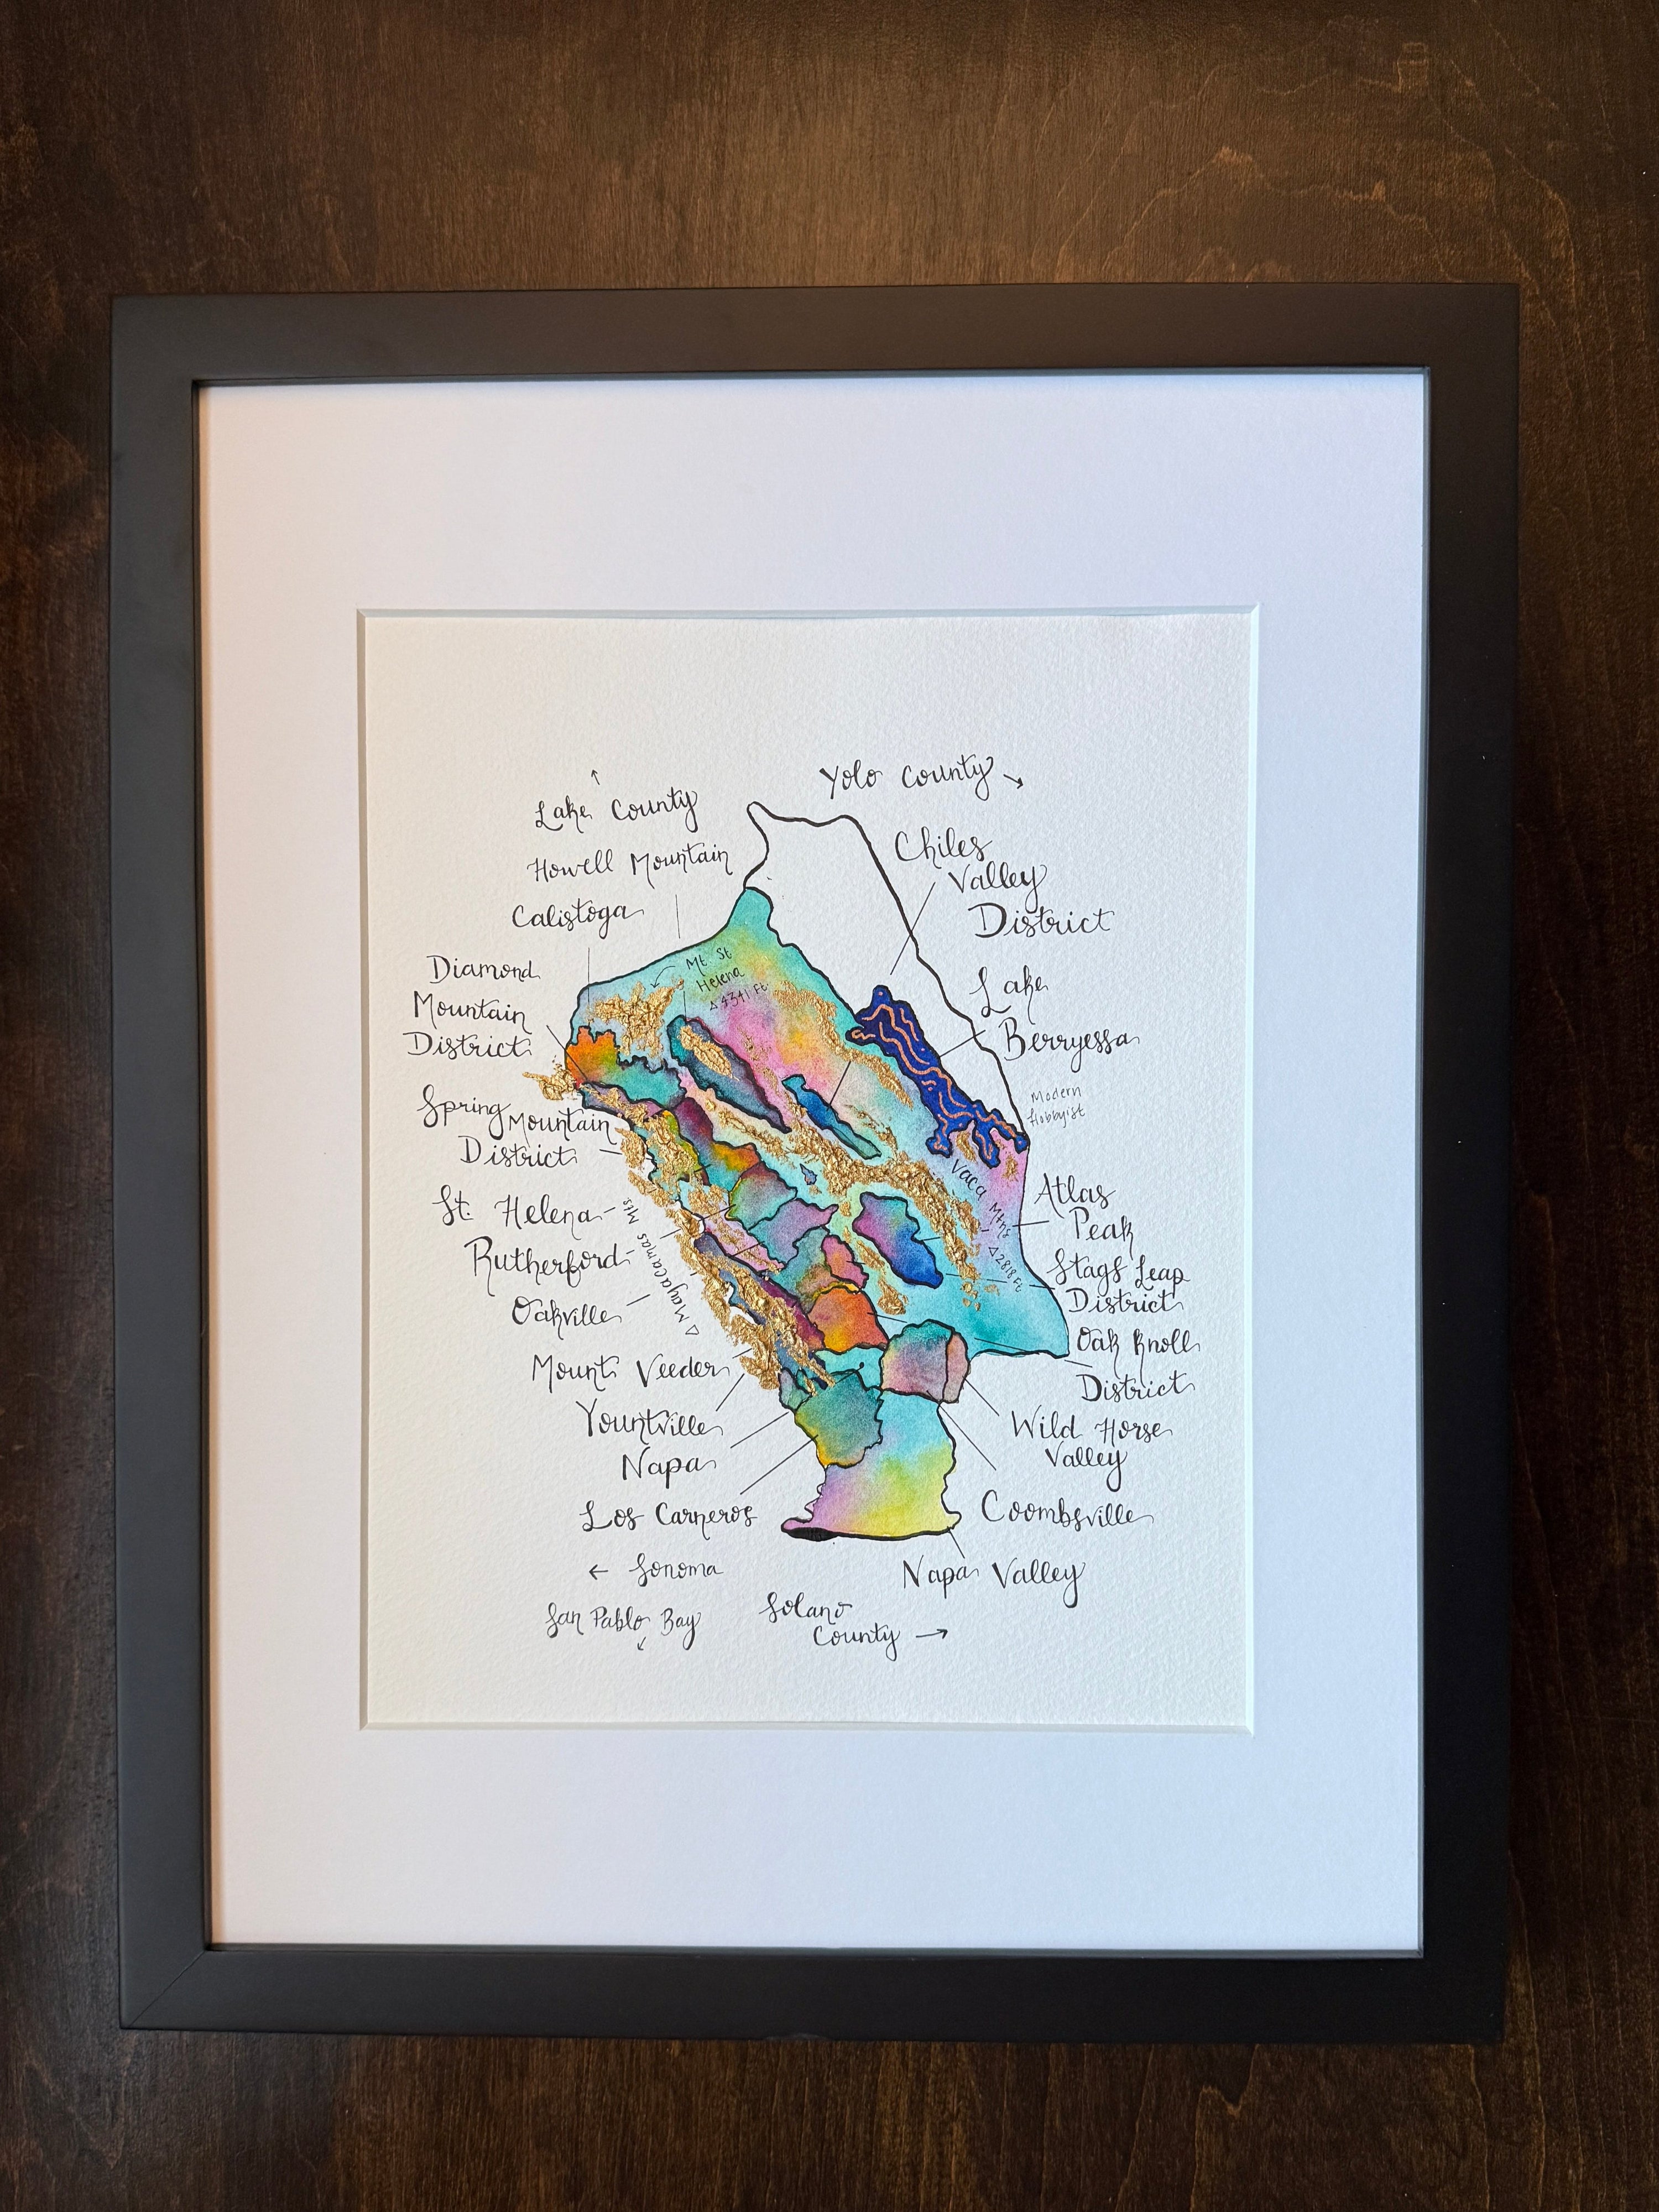 Yolo County
Lake County
Howell Mountain
Calistoga
Chiles
Valley
District
Diamond
Mountain
District
Mt St
Helena
4341 Ft
Lake
Berryessa
Modern
Hobbyist
Spring Mountain
District
Vaca Mtns
2818 Ft
Atlas
Peak
St. Helena
Mayacamas Mts
Rutherford
Oakville
Stags Leap
District
Oak Knoll
District
Mount Veeder
Yountville
Napa
Los Carneros
Wild Horse
Valley
Coombsville
Napa Valley
← Sonoma
San Pablo Bay
Solano
County →